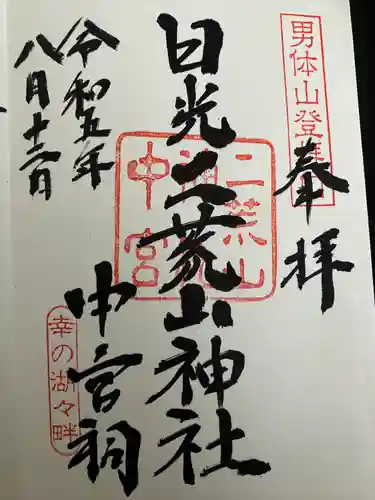 男体山登拝
奉拝
日光二荒山神社
二荒山
神社
中宮
中宮祠
幸の湖々畔
令和五年
八月十二日